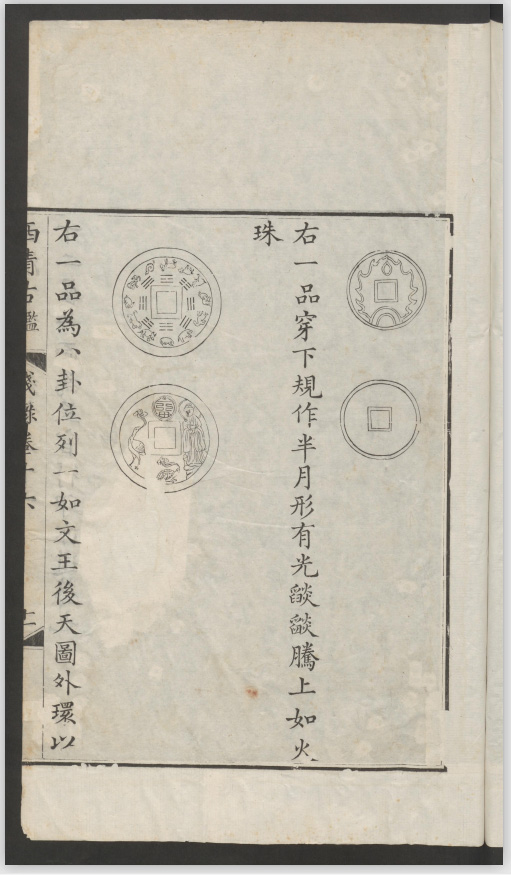 右一品穿下規作半月形有光燄燄騰上如火
珠
右一品為八卦位列一如文王後天圖外環以
西清古鑑 錢錄卷十六